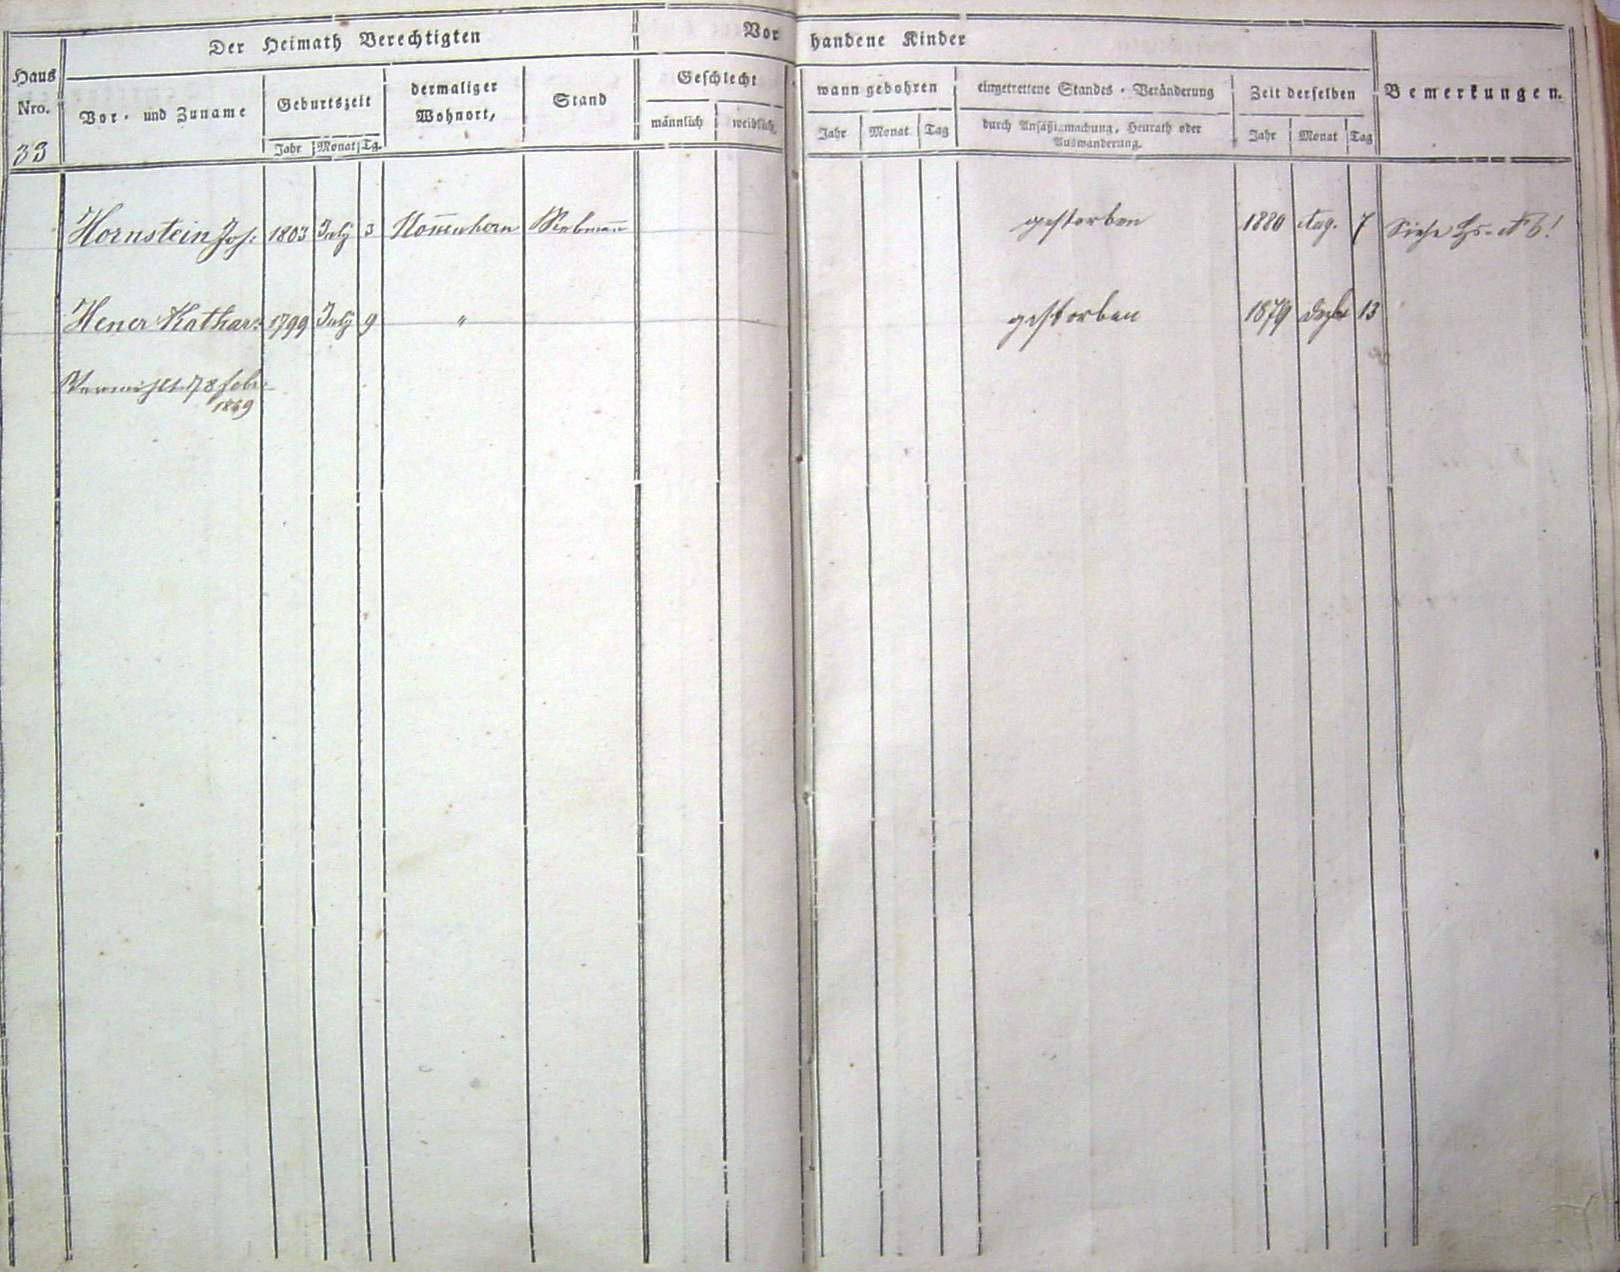 Der Heimath Berechtigten
Vorhandene Kinder
Haus Nro.
Vor- und Zuname
Geburtszeit
dermaliger Wohnort,
Stand
Geschlecht
wann gebohren
eingetrettene Standes-Veränderung
Zeit derselben
Bemerkungen.
männlich weiblich
durch Ansäßigmachung, Heurath oder
Auswanderung.
Jahr Monat Tg.
Jahr Monat Tag
Jahr Monat Tag
33
Hornstein Jos: 1803 July 3 Non̄enhorn Rebman̄ gestorben 1880 Aug. 7 Siehe Hs. N 6!
Hener Kathar: 1799 July 9 " gestorben 1879 Dezbr 13
Verehlicht 78 Febr.
1869